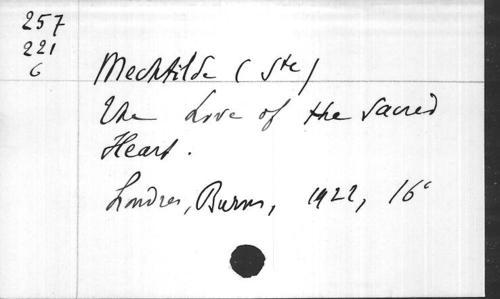 257
221
6
Mechtilde (Ste)
The Love of the Sacred
Heart.
Londres, Burns, 1922, 16°